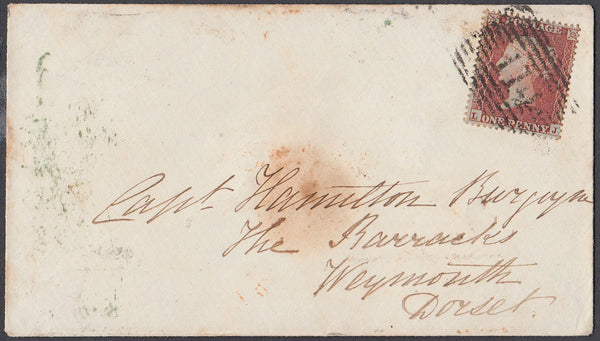 POSTAGE
L ONE PENNY J
Capt Hamilton Burgoyne
The Barracks
Weymouth
Dorset.